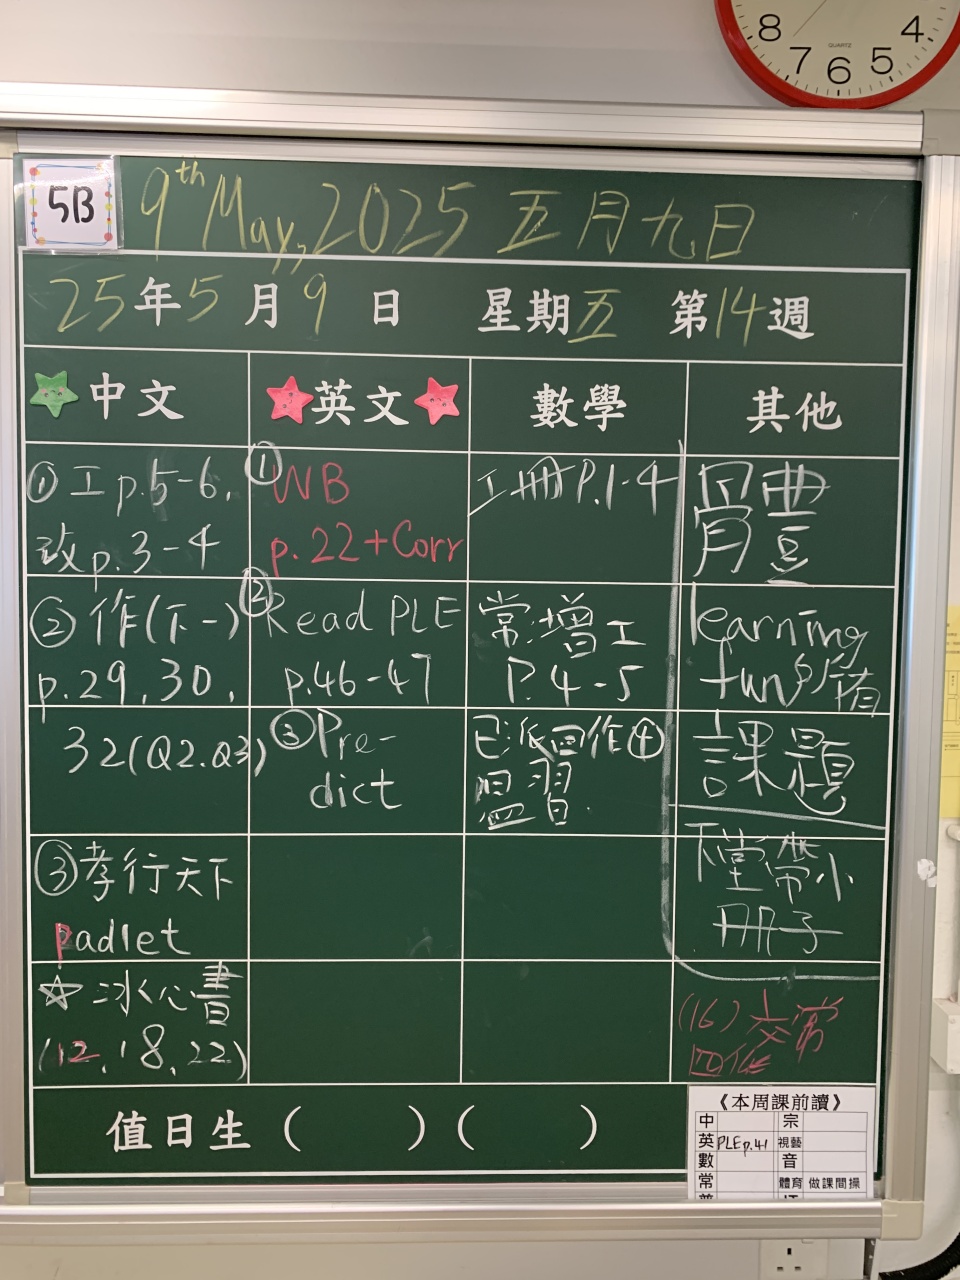 8 7 6 5 4
QUARTZ
5B
9th May, 2025 五月九日
25年5月9日 星期五 第14週
中文 英文 數學 其他
① 工p.5-6,
致p.3-4
② 作(下一)
p.29,30,
32(Q2.Q3)
③ 孝行天下
padlet
☆ 冰心書
(12,18,22)
① WB
p.22+Corr
② Read PLE
p.46-47
③ Pre-
dict
工冊P.1-4
常增工
P.4-5
已派回作④
溫習
learning
fun 所有
課題
下堂帶小
冊子
(16)交常
值日生( )( )
《本周課前讀》
中 宗
英 PLE p.41 視藝
數 音
常 體育 做課間操
普 IT